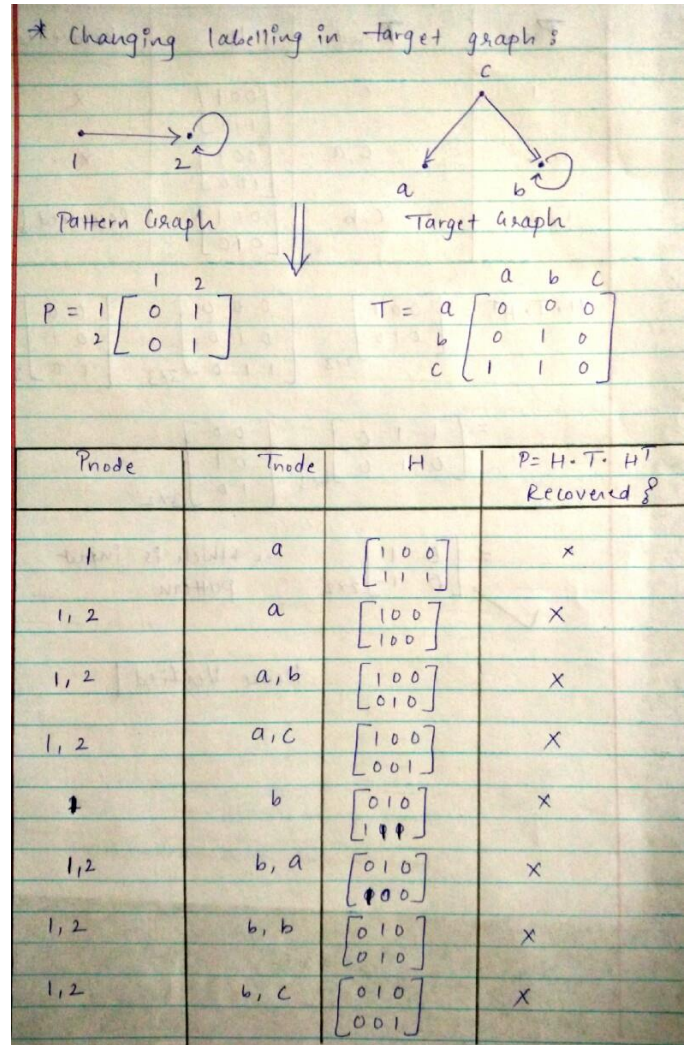 * Changing labelling in target graph :
c
1 2
a b
Pattern Graph Target Graph
1 2 a b c
P = 1 [ 0 1 ] T = a [ 0 0 0 ]
2 [ 0 1 ] b [ 0 1 0 ]
c [ 1 1 0 ]
Pnode Tnode H P = H · T · H^T
Recovered ?
1 a [ 1 0 0 ] ×
[ 1 1 1 ]
1, 2 a [ 1 0 0 ] ×
[ 1 0 0 ]
1, 2 a, b [ 1 0 0 ] ×
[ 0 1 0 ]
1, 2 a, c [ 1 0 0 ] ×
[ 0 0 1 ]
1 b [ 0 1 0 ] ×
[ 1 1 1 ]
1,2 b, a [ 0 1 0 ] ×
[ 1 0 0 ]
1,2 b, b [ 0 1 0 ] ×
[ 0 1 0 ]
1,2 b, c [ 0 1 0 ] ×
[ 0 0 1 ]